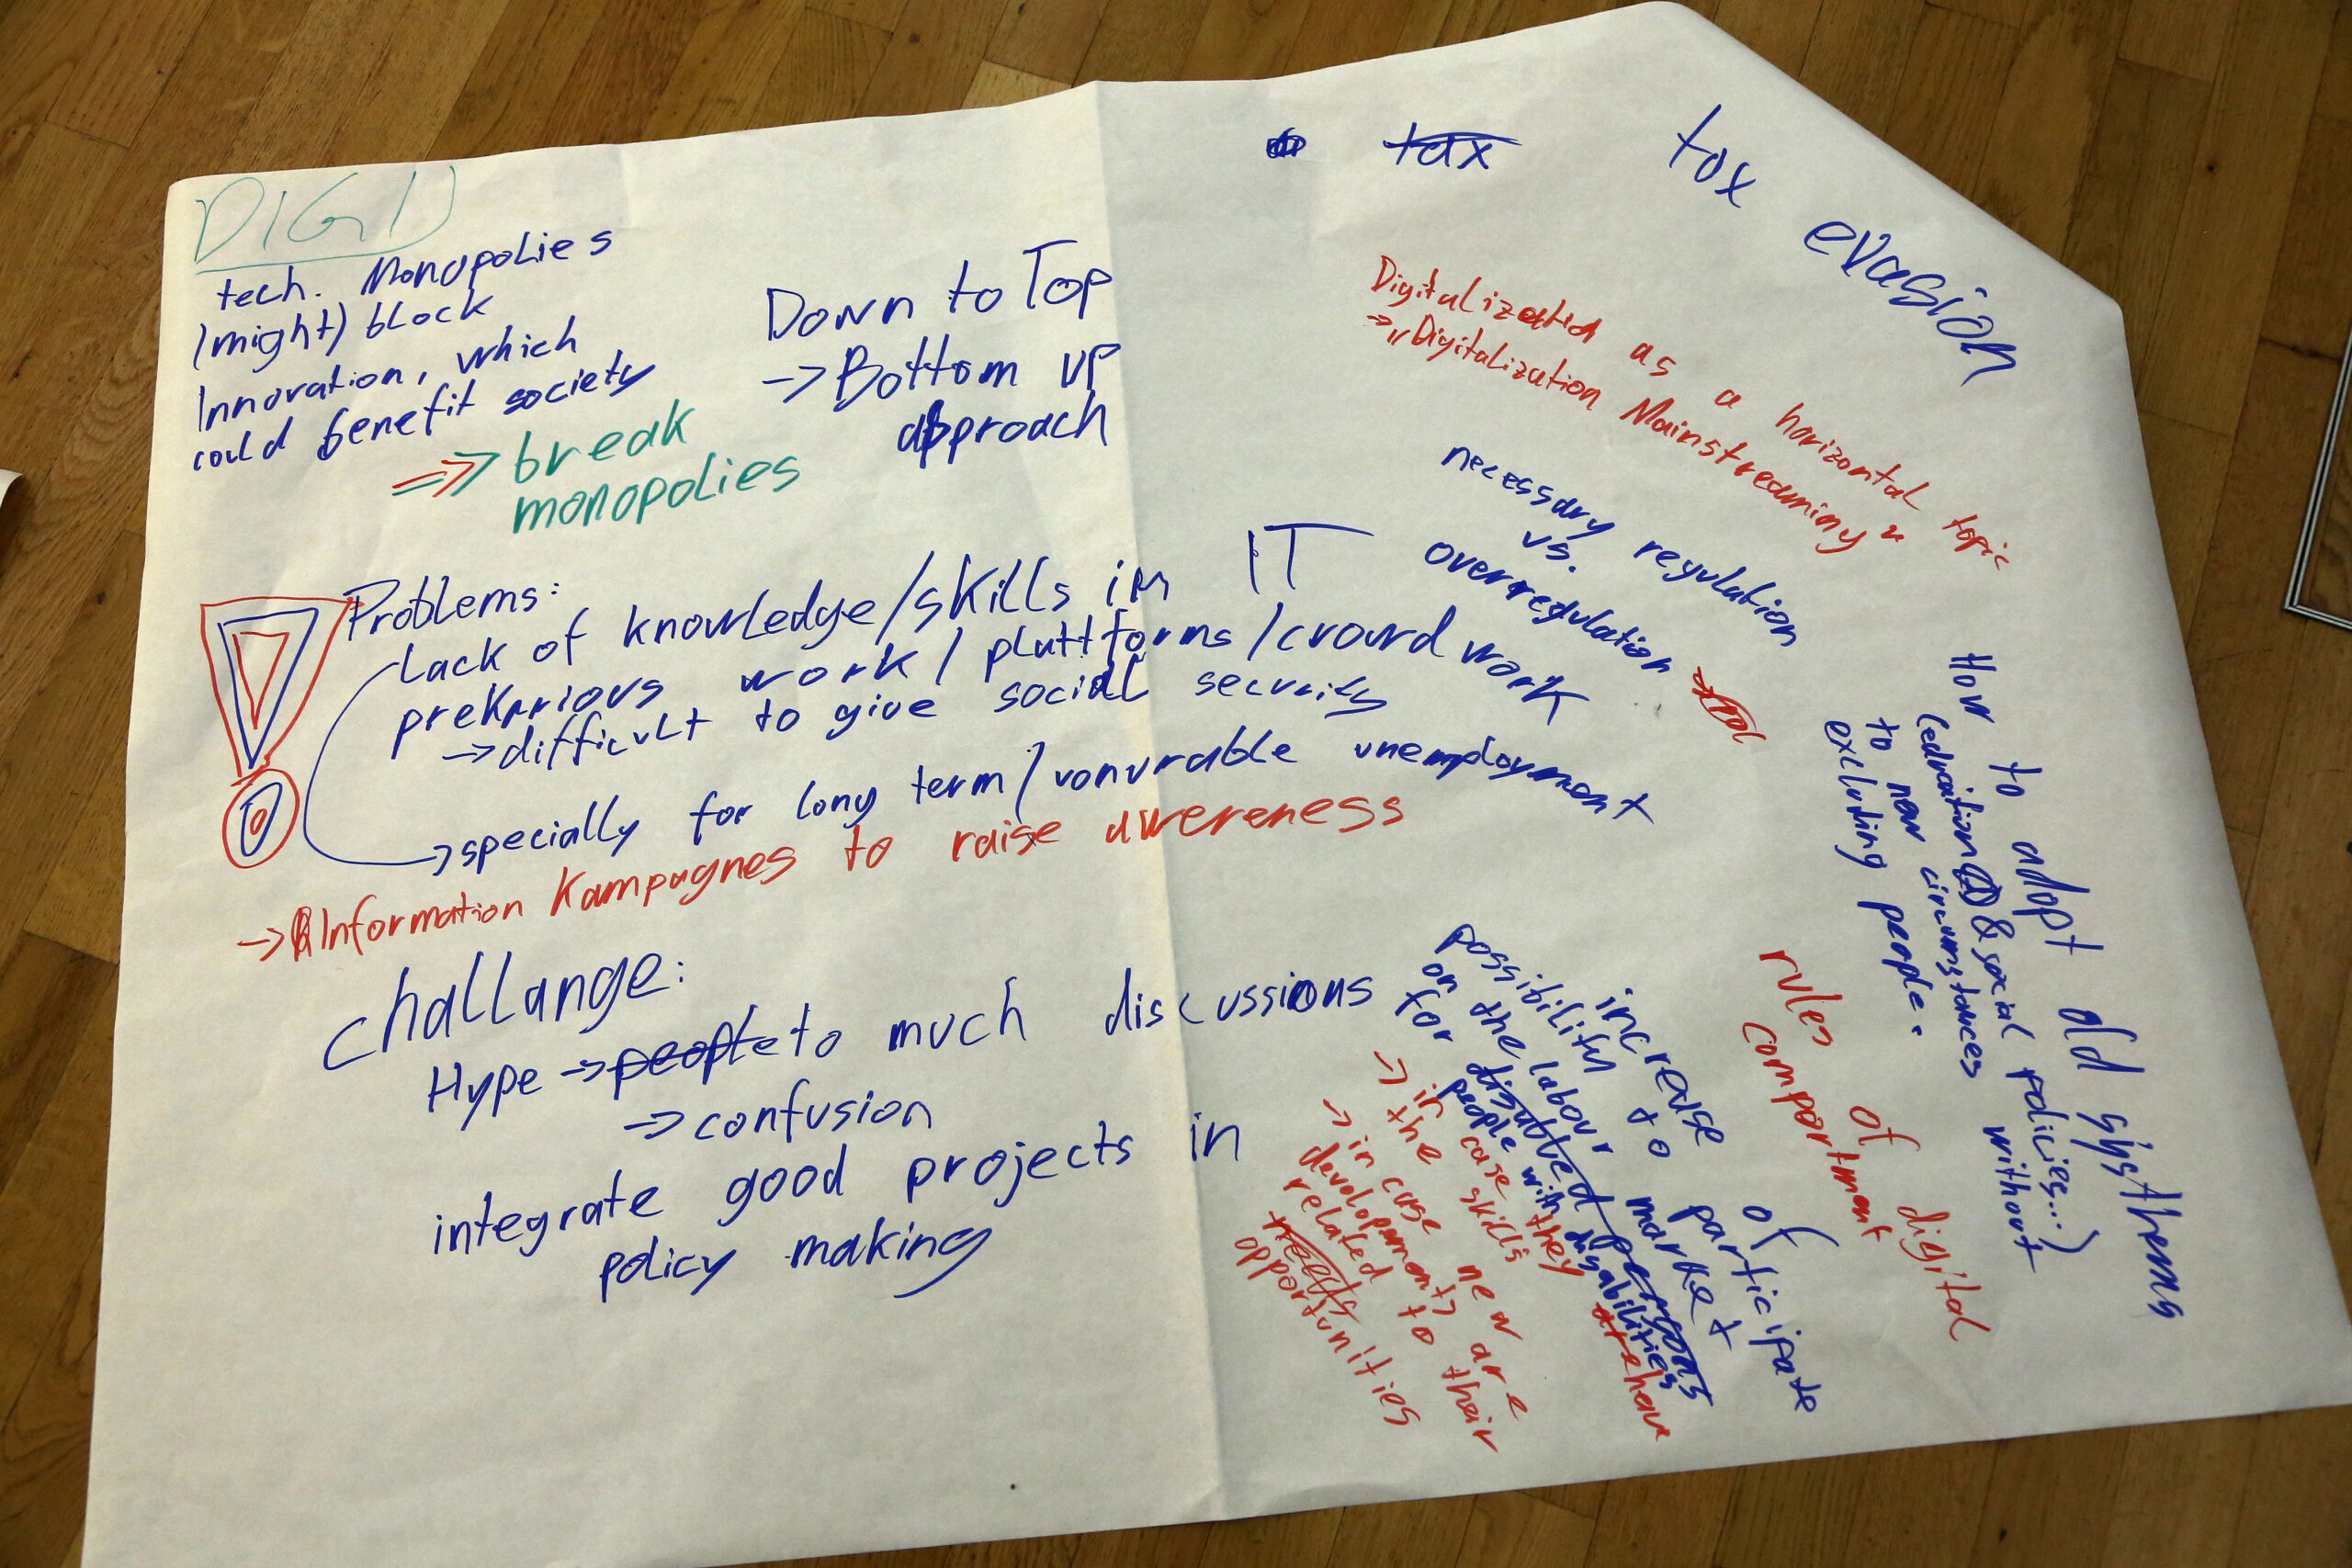 DIGI
tech. Monopolies
(might) block
Innovation, which
could benefit society
=>> break
monopolies
Down to Top
-> Bottom up
approach
tax
tax evasion
Digitalizatied as a horizontal topic
-> "Digitalization Mainstreaming"
necessary regulation
vs.
overregulation
Problems:
Lack of knowledge/skills in IT
prekarious work / plattforms / crowd work
-> difficult to give social security
-> specially for long term/vonurable unemployment
-> Information Kampagnes to raise awereness
challange:
Hype -> people to much discussions
-> confusion
integrate good projects in
policy making
How to adopt old systhems
(education & social policies...)
to new circumstances without
excluding people.
rules of digital
comportment
increase of
possibility to participate
on the labour market
for disabled persons
people with disabilities
-> in case they are have
the skills
-> in case new are
development
related to their
needs
opportunities